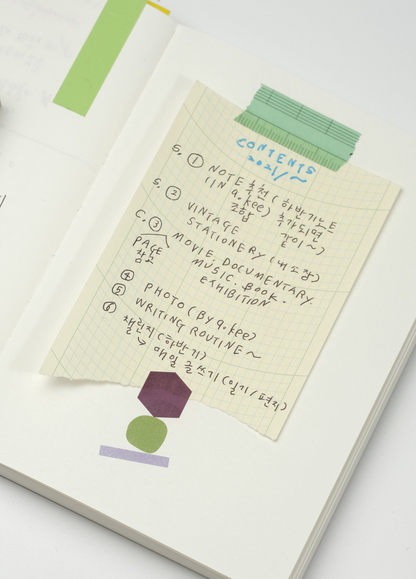 CONTENTS
2021/~
S. ① NOTE 추천 (하반기노트
(IN 9.kee) 추가되면
조합 같이~)
S. ② VINTAGE
STATIONERY (내 소장)
C. ③ MOVIE. DOCUMENTARY.
PAGE MUSIC. BOOK.
참고 EXHIBITION
④ PHOTO (BY 9.kee)
⑤ WRITING ROUTINE~
⑥ 챌린지 (하반기)
↳ 매일 글쓰기 (일기/편지)